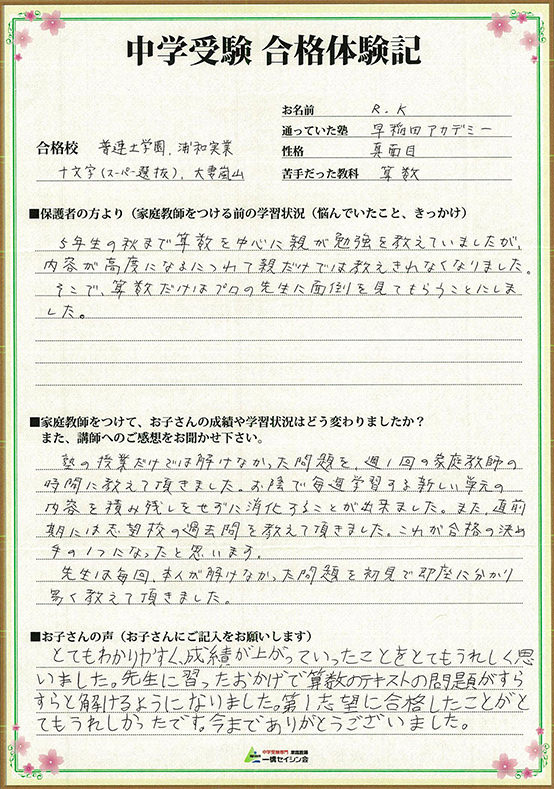 中学受験 合格体験記
お名前 R.K
通っていた塾 早稲田アカデミー
合格校 普連土学園、浦和実業
性格 真面目
十文字(スーパー選抜)、大妻嵐山
苦手だった教科 算数
■保護者の方より（家庭教師をつける前の学習状況（悩んでいたこと、きっかけ）
5年生の秋まで算数を中心に親が勉強を教えていましたが、
内容が高度になるにつれて親だけでは教えきれなくなりました。
そこで、算数だけはプロの先生に面倒を見てもらうことにしま
した。
■家庭教師をつけて、お子さんの成績や学習状況はどう変わりましたか？
また、講師へのご感想をお聞かせ下さい。
塾の授業だけでは解けなかった問題を、週1回の家庭教師の
時間に教えて頂きました。お陰で毎週学習する新しい単元の
内容を積み残しをせずに消化することが出来ました。また、直前
期には志望校の過去問を教えて頂きました。これが合格の決め
手の1つになったと思います。
先生は毎回、本人が解けなかった問題を初見で即座に分かり
易く教えて頂きました。
■お子さんの声（お子さんにご記入をお願いします）
とてもわかりやすく、成績が上がっていったことをとてもうれしく思
いました。先生に習ったおかげで算数のテキストの問題がすら
すらと解けるようになりました。第1志望に合格したことがと
てもうれしかったです。今までありがとうございました。
中学受験専門 家庭教師
一橋セイシン会